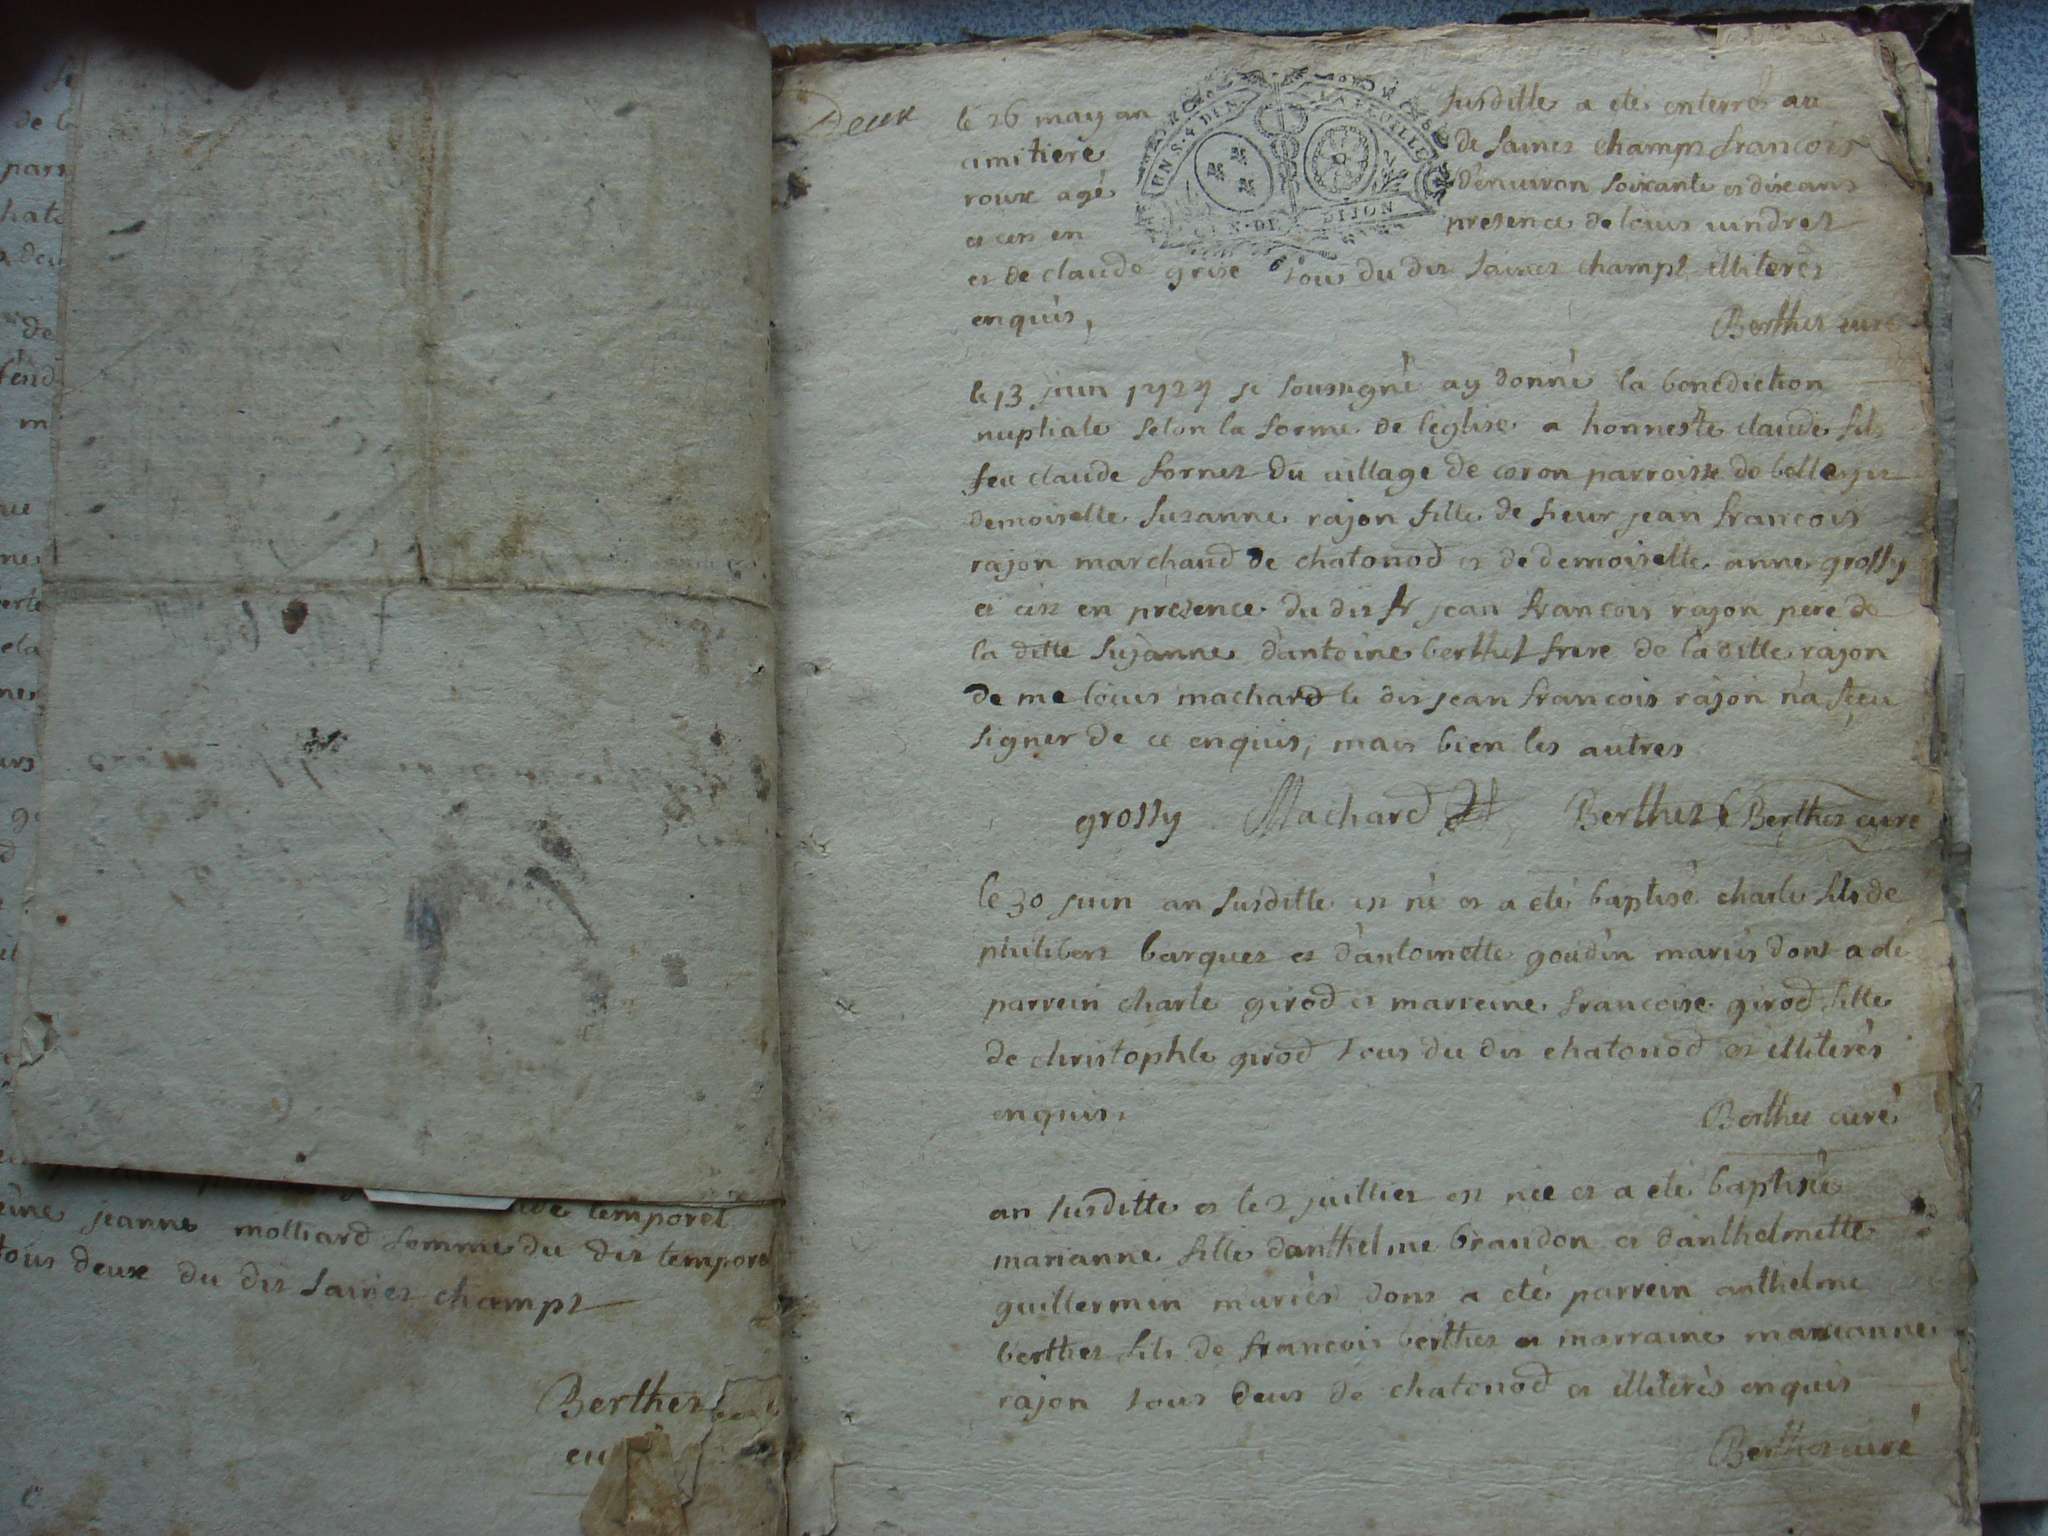 de
parr
hate
de
fend
m
ne
ela
ne
urs
temporel
eine jeanne molliard femme du dit temporel
tous deux du dit sainct champt
Berthet
cu
Deux
le 26 may an susditte a eté enterré au
cimitiere de sainct champt francois
roux agé d'enuiron soixante et dix ans
et ce en presence de louis uindret
et de claude grise tous du dit sainct champt illiterés
enquis,
UN S. 4 DEN. LA FEUILLE
GEN. DE DIJON
Berthet curé
le 13 juin 1727 je soussigné ay donné la benediction
nuptiale selon la forme de l'eglise a honneste claude fils
feu claude fornet du uillage de coron parroisse de belley et
demoiselle suzanne rajon fille de sieur jean francois
rajon marchand de chatonod et de demoiselle anne grossy
et ce en presence du dit sr jean francois rajon pere de
la ditte suzanne d'antoine berthet frere de la ditte rajon
de me louis machard le dit jean francois rajon n'a sçeu
signer de ce enquis, mais bien les autres
grossy Machard Berthet Berthet curé
le 30 juin an susditte est né et a eté baptisé charle fils de
philibert barquet et d'antoinette goudin mariés dont a eté
parrein charle girod et marreine francoise girod fille
de christophle girod tous du dit chatonod et illiterés
enquis.
Berthet curé
an susditte et le 2 juillet est née et a eté baptisée
marianne fille d'anthelme brandon et d'anthelmette
guillermin mariés dont a eté parrein anthelme
berthet fils de francois berthet et marraine marianne
rajon tous deus de chatonod et illiterés enquis
Berthet curé